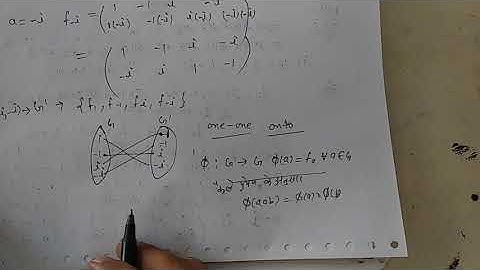 a = -i   f-i = ( 1   -1   i   -i
1(-i)   -1(-i)   i(-i)   (-i)(-i) )
= ( 1   -1   i   -i
-i   i   1   -1 )
, -i) → G' → { f1, f-1, fi, f-i }
G   G'
one-one   onto
φ : G → G'   φ(a) = fa ∀ a ∈ G
के अनुसार
φ(aob) = φ(a) * φ(b